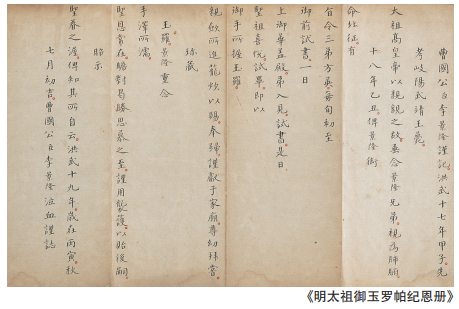 曹國公臣李景隆謹記洪武十七年甲子先
考岐陽武靖王薨
太祖高皇帝以親親之故垂念景隆兄弟視為肺腑
十八年乙丑俾景隆銜
命 征有
旨令三弟方英每旬初至
御前試書一日
上御華蓋殿弟入見試書是日
聖祖喜悅試畢即以
御手所握玉羅
親 所進籠炊以賜奉歸謹獻于家廟尊幼拜嘗
珎藏
玉羅景隆重念
手澤所濡
聖恩常在瞻對曷勝思慕之至謹用裝護以貽後嗣
昭示
聖眷之渥俾知其所自云洪武十九年歲在丙寅秋
七月初吉曹國公臣李景隆泣血謹誌
《明太祖御玉罗帕纪恩册》